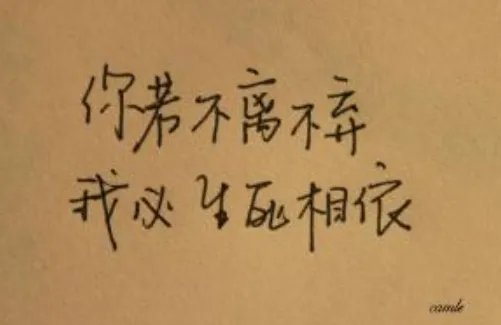 你若不离不弃
我必生死相依
camile